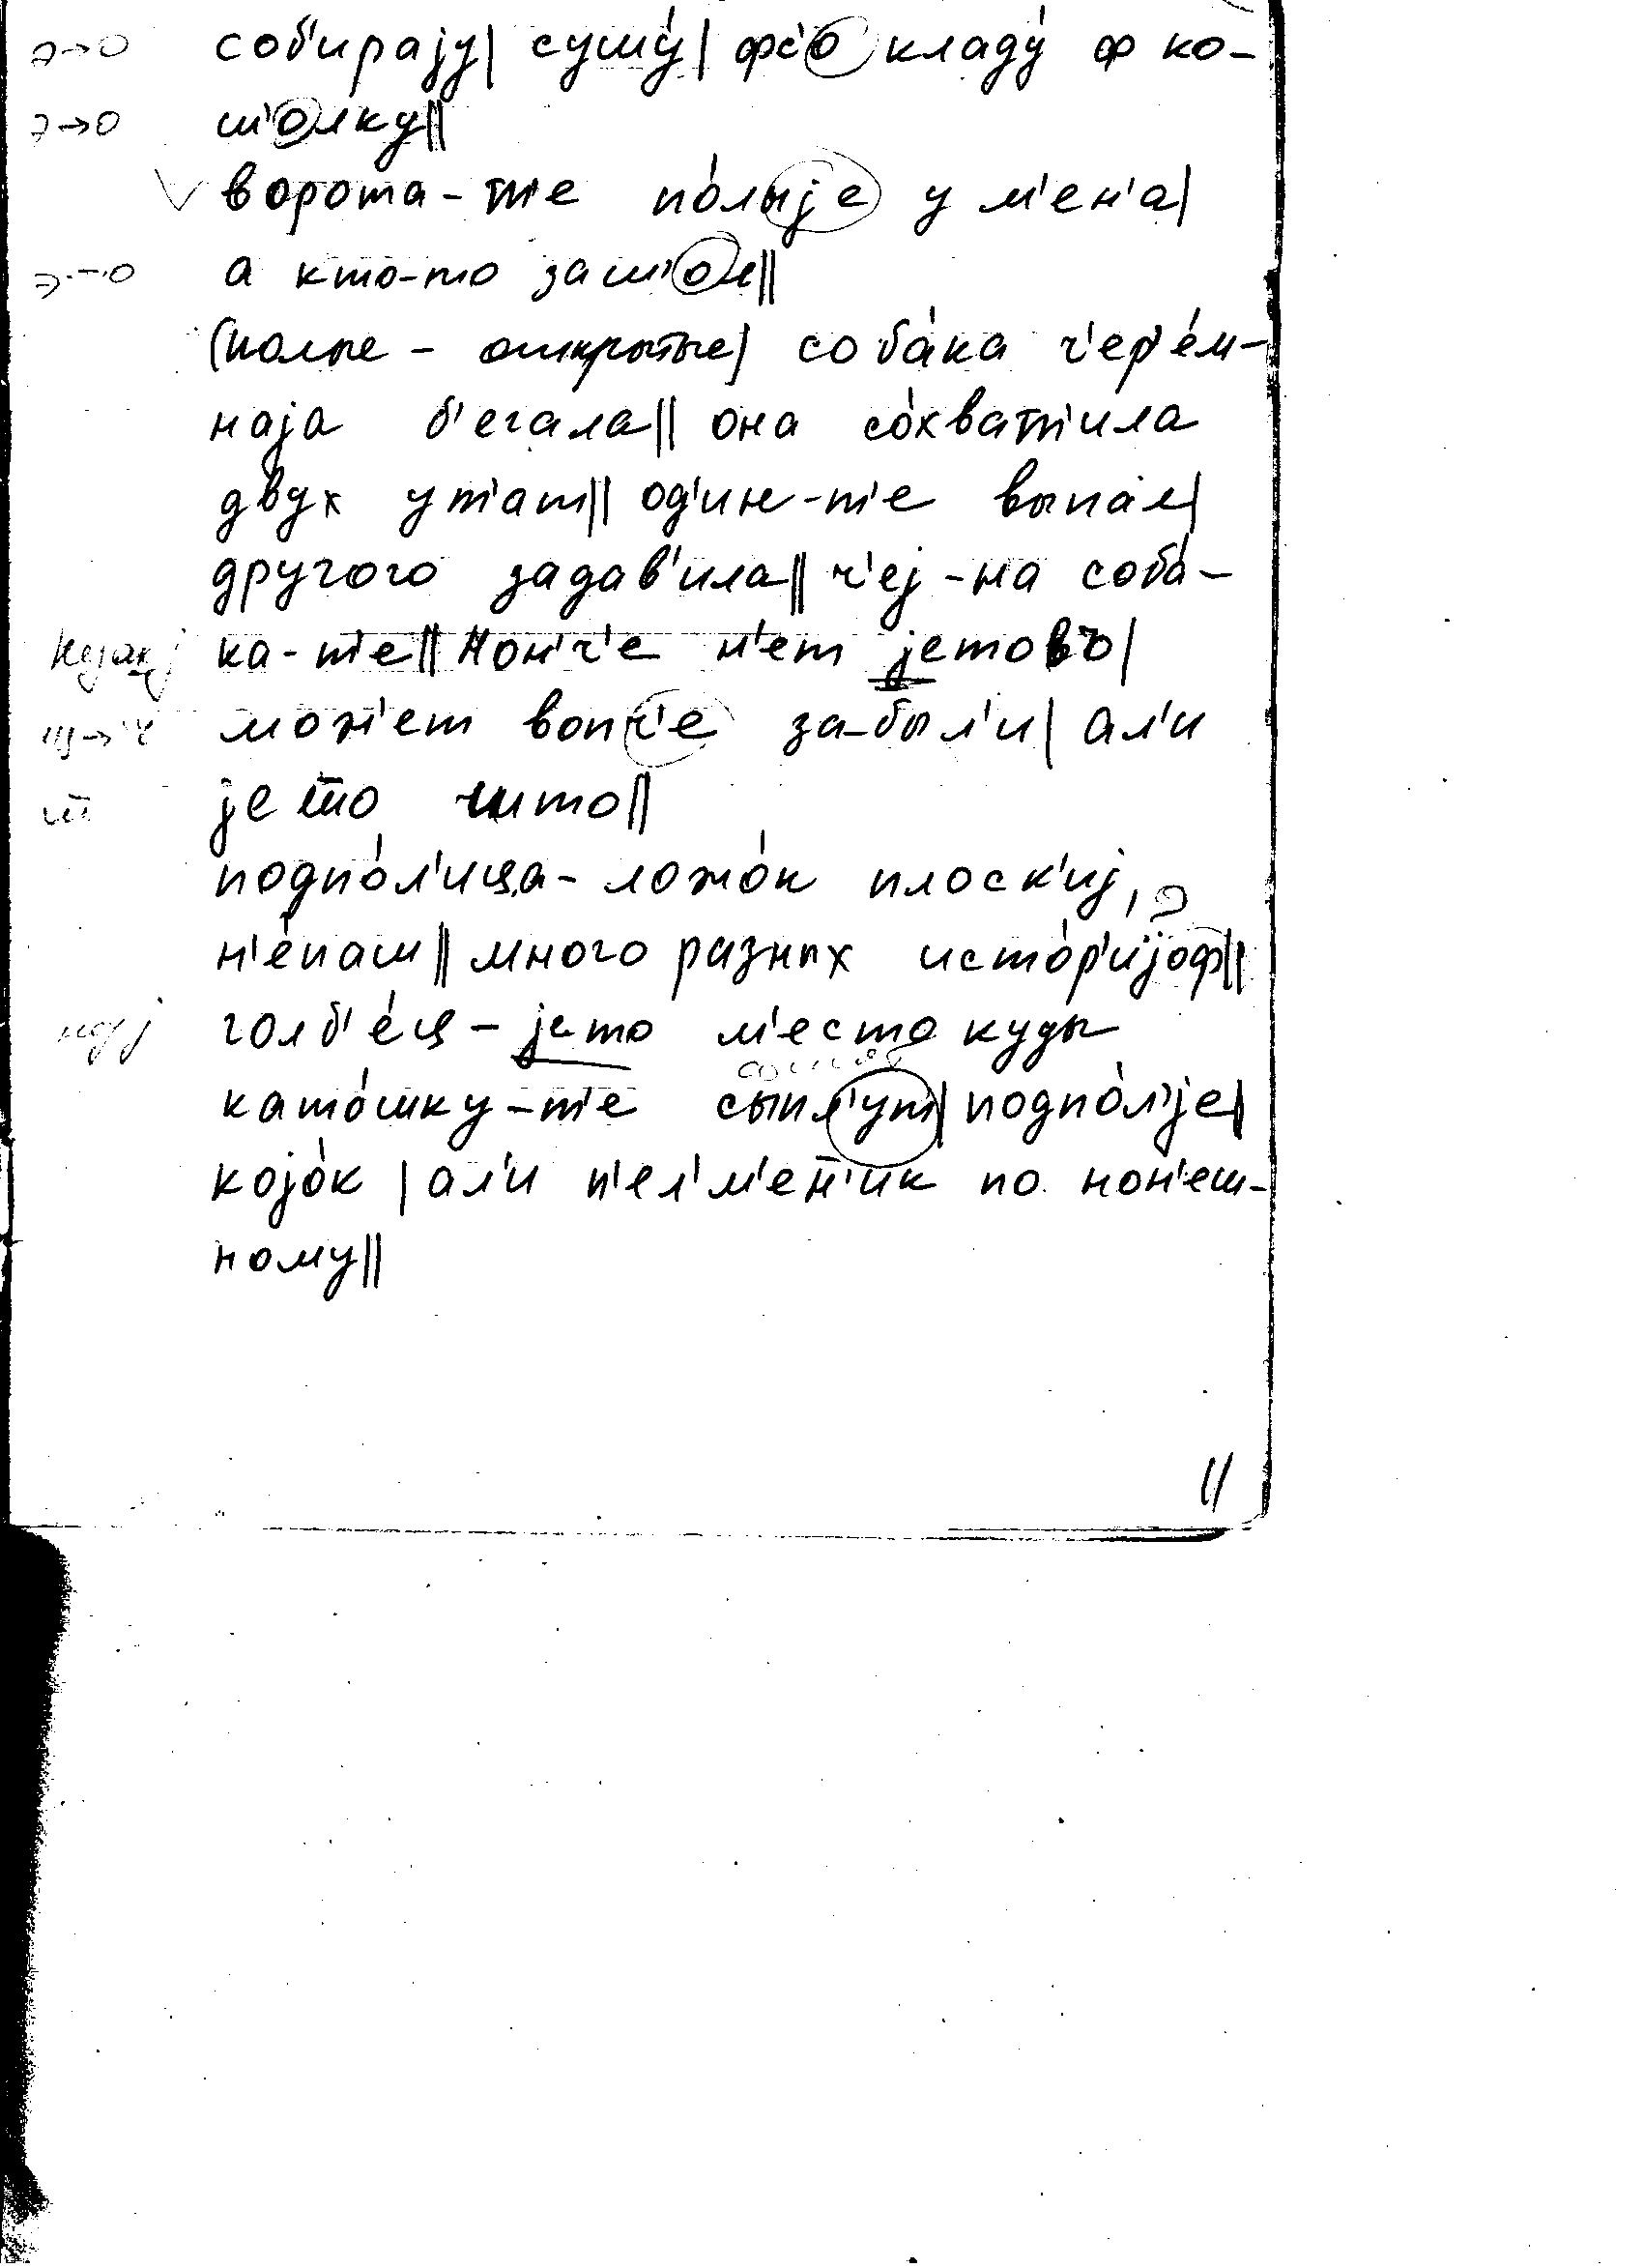 э→о соб'ирајy| сушу́| фс'о кладу́ ф ко-
э→о ш'олку||
ворота-т'е по́лыје у м'ен'а|
э→о а кто-то заш'ол||
(полые - открытые) соба́ка ч'ер'е́м-
наја б'егала|| она со́хват'ила
двух ут'ат|| од'ин-т'е выпал|
другого задав'ила|| ч'еј-на соба́-
ка-т'е|| Нон'ч'е н'ет јетово|
щ→ч мож'ет вопч'е за-был'и| ал'и
јето что||
подпо́л'ица - ложо́к плоск'иј,
н'е́паш|| много разных исто́р'ијоф||
голб'е́ц - јето м'есто куды
като́шку-т'е сыпл'ут| подпо́л'је|
којо́к | ал'и п'ел'м'ен'ик по нон'еш-
ному||
11